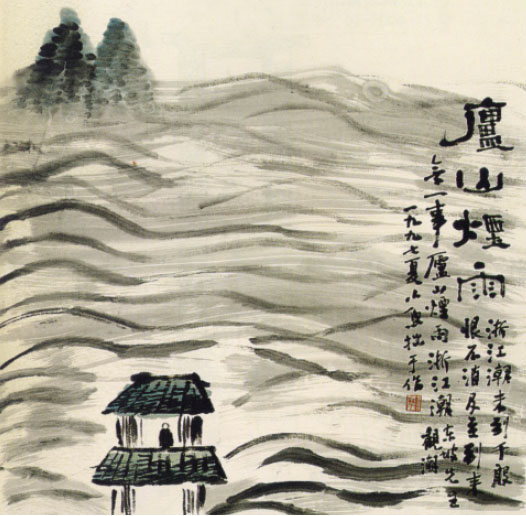 廬山煙雨
浙江潮未到千般
恨不消及至到來
無一事廬山煙雨浙江潮東坡先生
觀潮
一九九七夏